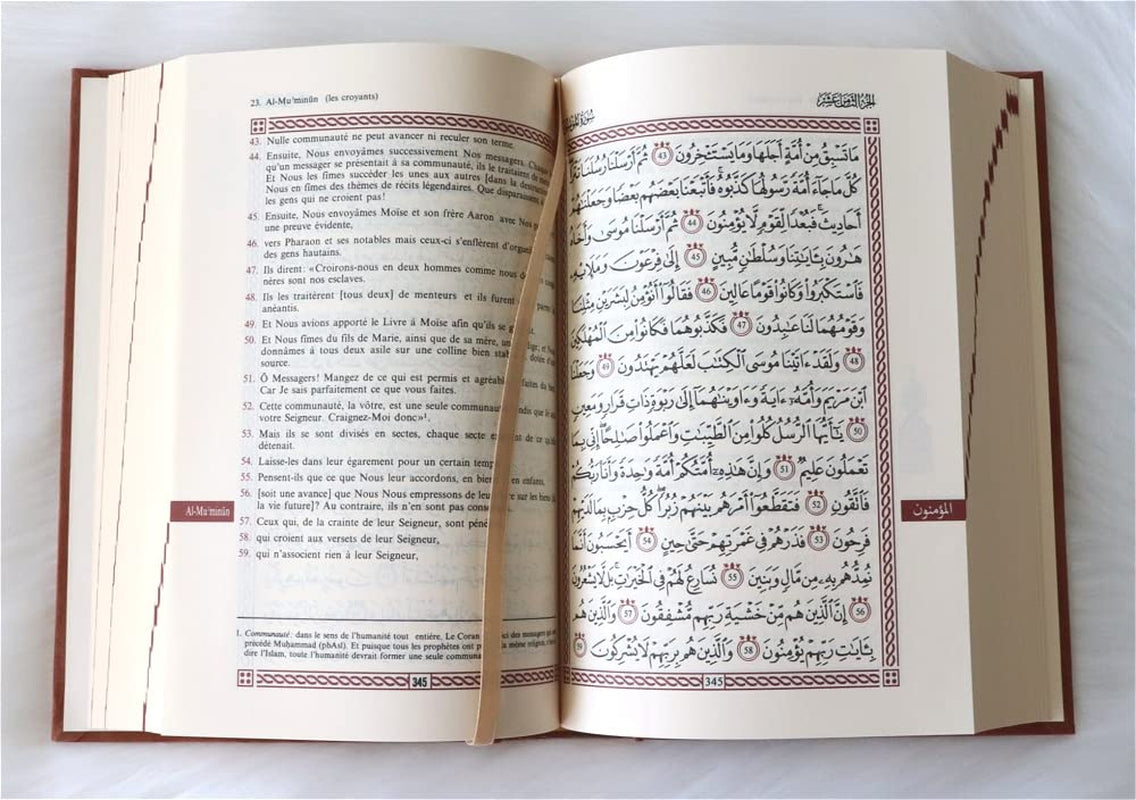 23. Al-Mu'minūn (les croyants)
43. Nulle communauté ne peut avancer ni reculer son terme.
44. Ensuite, Nous envoyâmes successivement Nos messagers.
qu'un messager se présentait à sa communauté, ils le traitaient de
Et Nous les fîmes succéder les unes aux autres [dans la
Nous en fîmes des thèmes de récits légendaires. Que disparaissent
les gens qui ne croient pas!
45. Ensuite, Nous envoyâmes Moïse et son frère Aaron avec Nos
une preuve évidente,
46. vers Pharaon et ses notables mais ceux-ci s'enflèrent
des gens hautains.
47. Ils dirent: «Croirons-nous en deux hommes comme nous
nères sont nos esclaves.
48. Ils les traitèrent [tous deux] de menteurs et ils furent
anéantis.
49. Et Nous avions apporté le Livre à Moïse afin qu'ils se
50. Et Nous fîmes du fils de Marie, ainsi que de sa mère,
donnâmes à tous deux asile sur une colline bien
source.
51. Ô Messagers! Mangez de ce qui est permis et
Car Je sais parfaitement ce que vous faites.
52. Cette communauté, la vôtre, est une seule
votre Seigneur. Craignez-Moi donc»¹.
53. Mais ils se sont divisés en sectes, chaque secte
détenait.
54. Laisse-les dans leur égarement pour un certain
55. Pensent-ils que ce que Nous leur accordons, en enfants,
56. [soit une avance] que Nous Nous empressons de sur les biens
la vie future]? Au contraire, ils n'en sont pas
57. Ceux qui, de la crainte de leur Seigneur, sont
58. qui croient aux versets de leur Seigneur,
59. qui n'associent rien à leur Seigneur,
Al-Mu'minūn
1. Communauté: dans le sens de l'humanité tout entière. Le Coran des messagers
précédé Muḥammad (pbAsl). Et puisque tous les prophètes ont la même religion,
dire l'Islam, toute l'humanité devrait former une seule
345
الجزء الثامن عشر
مَا تَسْبِقُ مِنْ أُمَّةٍ أَجَلَهَا وَمَا يَسْتَـْٔخِرُونَ ٤٣ ثُمَّ أَرْسَلْنَا رُسُلَنَا تَتْرَا
كُلَّ مَا جَآءَ أُمَّةً رَّسُولُهَا كَذَّبُوهُ فَأَتْبَعْنَا بَعْضَهُم بَعْضًا وَجَعَلْنَٰهُمْ
أَحَادِيثَ فَبُعْدًا لِّقَوْمٍ لَّا يُؤْمِنُونَ ٤٤ ثُمَّ أَرْسَلْنَا مُوسَىٰ وَأَخَاهُ
هَٰرُونَ بِـَٔايَٰتِنَا وَسُلْطَٰنٍ مُّبِينٍ ٤٥ إِلَىٰ فِرْعَوْنَ وَمَلَإِيْهِ
فَٱسْتَكْبَرُوا۟ وَكَانُوا۟ قَوْمًا عَالِينَ ٤٦ فَقَالُوٓا۟ أَنُؤْمِنُ لِبَشَرَيْنِ مِثْلِنَا
وَقَوْمُهُمَا لَنَا عَٰبِدُونَ ٤٧ فَكَذَّبُوهُمَا فَكَانُوا۟ مِنَ ٱلْمُهْلَكِينَ
٤٨ وَلَقَدْ ءَاتَيْنَا مُوسَى ٱلْكِتَٰبَ لَعَلَّهُمْ يَهْتَدُونَ ٤٩ وَجَعَلْنَا
ٱبْنَ مَرْيَمَ وَأُمَّهُۥٓ ءَايَةً وَءَاوَيْنَٰهُمَآ إِلَىٰ رَبْوَةٍ ذَاتِ قَرَارٍ وَمَعِينٍ
٥٠ يَٰٓأَيُّهَا ٱلرُّسُلُ كُلُوا۟ مِنَ ٱلطَّيِّبَٰتِ وَٱعْمَلُوا۟ صَٰلِحًا إِنِّى بِمَا
تَعْمَلُونَ عَلِيمٌ ٥١ وَإِنَّ هَٰذِهِۦٓ أُمَّتُكُمْ أُمَّةً وَٰحِدَةً وَأَنَا۠ رَبُّكُمْ
فَٱتَّقُونِ ٥٢ فَتَقَطَّعُوٓا۟ أَمْرَهُم بَيْنَهُمْ زُبُرًا كُلُّ حِزْبٍۭ بِمَا لَدَيْهِمْ
فَرِحُونَ ٥٣ فَذَرْهُمْ فِى غَمْرَتِهِمْ حَتَّىٰ حِينٍ ٥٤ أَيَحْسَبُونَ أَنَّمَا
نُمِدُّهُم بِهِۦ مِن مَّالٍ وَبَنِينَ ٥٥ نُسَارِعُ لَهُمْ فِى ٱلْخَيْرَٰتِ بَل لَّا يَشْعُرُونَ
٥٦ إِنَّ ٱلَّذِينَ هُم مِّنْ خَشْيَةِ رَبِّهِم مُّشْفِقُونَ ٥٧ وَٱلَّذِينَ هُم
بِـَٔايَٰتِ رَبِّهِمْ يُؤْمِنُونَ ٥٨ وَٱلَّذِينَ هُم بِرَبِّهِمْ لَا يُشْرِكُونَ ٥٩
المؤمنون
345